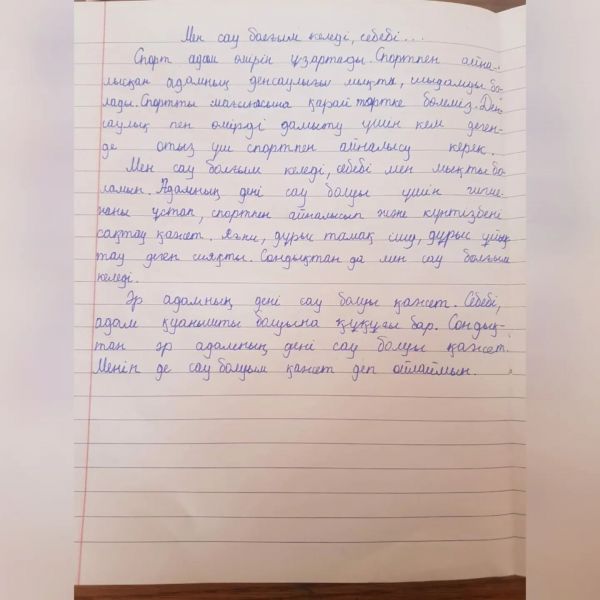 Мен сау болғым келеді, себебі...
Спорт адам өмірін ұзартады. Спортпен айна-
лысқан адамның денсаулығы мықты, шыдамды бо-
лады. Спортты мағынасына қарай төртке бөлеміз. Ден-
саулық пен өмірді дамыту үшін кем деген-
де отыз үш спортпен айналысу керек.
Мен сау болғым келеді, себебі мен мықты бо-
ламын. Адамның дені сау болуы үшін гигие-
наны ұстап, спортпен айналысып және күнтізбені
сақтау қажет. Яғни, дұрыс тамақ ішу, дұрыс ұйық
тау деген сияқты. Сондықтан да мен сау болғым
келеді.
Әр адамның дені сау болуы қажет. Себебі,
адам қуанышты болуына құқығы бар. Сондық-
тан әр адамның дені сау болуы қажет.
Менің де сау болуым қажет деп ойлаймын.